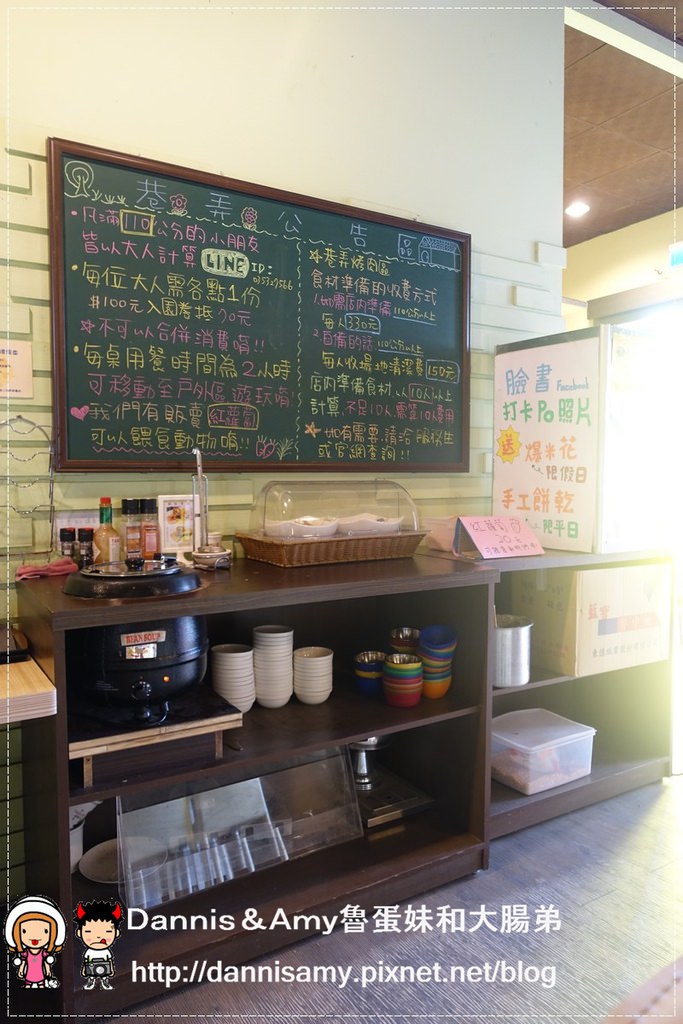 巷弄公告
•凡滿110公分的小朋友
皆以大人計算
LINE ID:
•每位大人需各點1份
$100元入園券抵70元
*不可以合併消費唷!!
•每桌用餐時間為2小時
可移動至戶外區遊玩唷!
♥我們有販賣紅蘿蔔
可以餵食動物唷!!
*巷弄烤肉區
食材準備的收費方式
1.如需店內準備 110公分以上
每人330元
2.自備的話 110公分以上
每人收場地清潔費150元
店內準備食材,以10人以上
計算,不足10人,需裝10人費用
*如有需要,請洽服務生
或官網查詢!!
臉書 Facebook
打卡Po照片
送 爆米花
限假日
手工餅乾
限平日
20元
BEAN SOUP
Dannis&Amy魯蛋妹和大腸弟
http://dannisamy.pixnet.net/blog